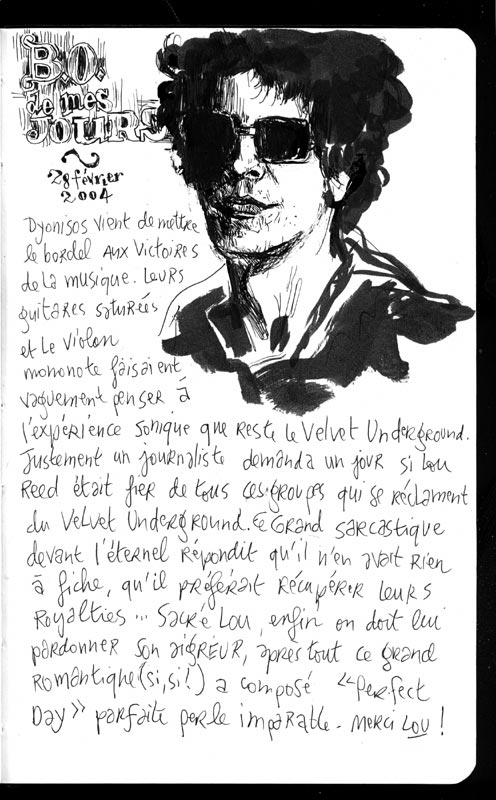 B.O.
de mes
JOURS
28 février
2004
Dyonisos vient de mettre
le bordel aux Victoires
de la musique. Leurs
guitares saturés
et le violon
monoto faisaient
vaguement penser à
l'expérience sonique que reste le Velvet Underground.
Justement un journaliste demanda un jour si Lou
Reed était fier de tous ces groupes qui se réclament
du Velvet Underground. Ce Grand sarcastique
devant l'éternel répondit qu'il n'en avait rien
à fiche, qu'il préférait récupérer leurs
Royalties... Sacré Lou, enfin on doit lui
pardonner son aigreur, après tout ce grand
Romantique (si, si!) a composé "Perfect
Day" parfaite perle imparable. Merci Lou !